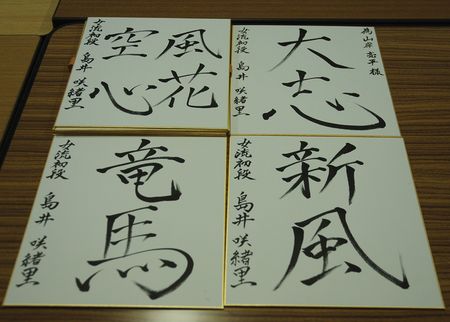 風花
空心
女流初段 島井 咲緒里
為山岸 亮平 様
大志
女流初段 島井 咲緒里
竜馬
女流初段 島井 咲緒里
新風
女流初段 島井 咲緒里